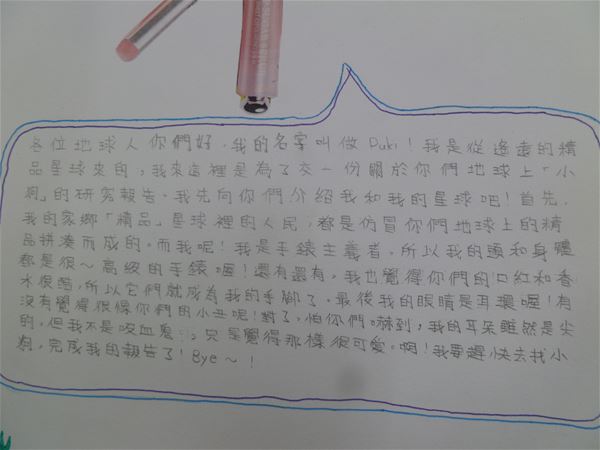 各位地球人你們好，我的名字叫做Puki！我是從遙遠的精
品星球來的，我來這裡是為了交一份關於你們地球上「小
狗」的研究報告。我先向你們介紹我和我的星球吧！首先，
我的家鄉「精品」星球裡的人民，都是仿冒你們地球上的精
品拼湊而成的。而我呢！我是手錶主義者，所以我的頭和身體
都是很～高級的手錶喔！還有還有，我也覺得你們的口紅和香
水很酷，所以它們就成為我的手腳了。最後我的眼睛是耳環喔！有
沒有覺得很像你們的小丑呢！對了，怕你們嚇到，我的耳朵雖然是尖
的，但我不是吸血鬼，只是覺得那樣很可愛。啊！我要趕快去找小
狗，完成我的報告了！Bye～！